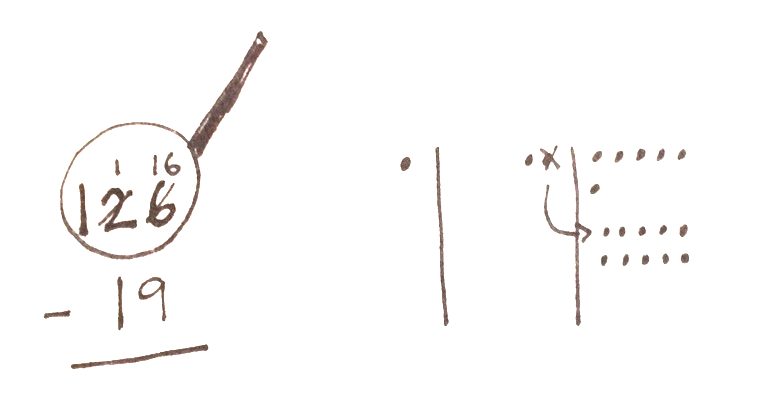 1 16
126
- 19